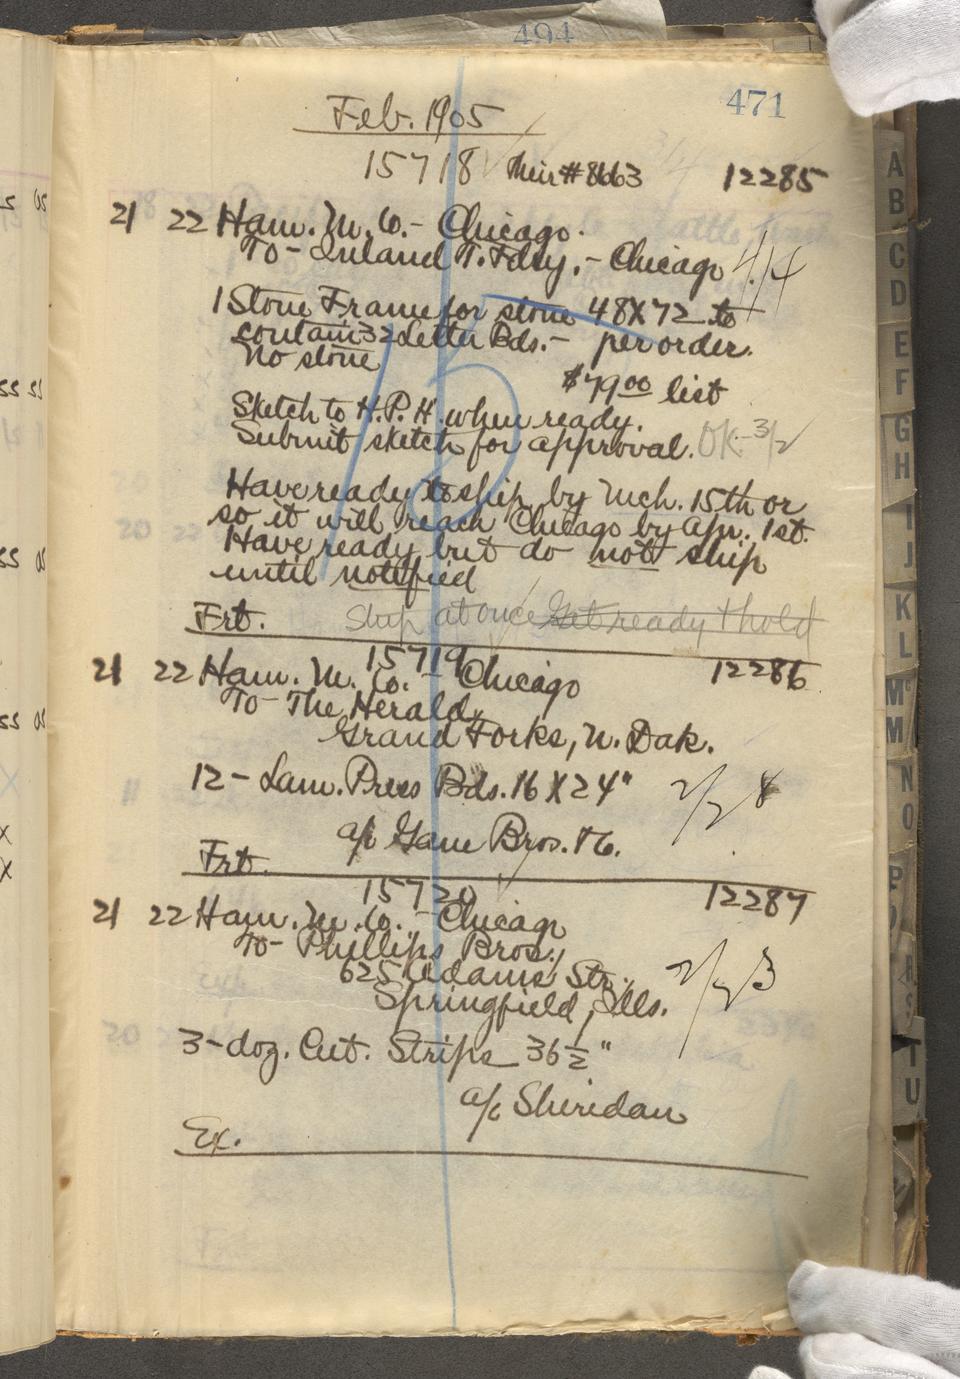 494
471
Feb. 1905
15718 Their # 8663 12285
21 22 Ham. M. Co. - Chicago.
To - Inland T. Fdry. - Chicago 4/4
1 Stone Frame for stone 48X72 to
contain 32 Letter Bds. - per order.
No stone
$79.00 list
Sketch to H.P.H. when ready.
Submit sketch for approval. OK - 3/2
Have ready to ship by Mch. 15th or
so it will reach Chicago by Apr. 1st.
Have ready but do not ship
until notified
Frt. Ship at once Get ready & hold
15719 12286
21 22 Ham. M. Co. - Chicago
To - The Herald,
Grand Forks, N. Dak.
12 - Lam. Press Bds. 16 X 24" 2/28
a/c Gane Bros. & Co.
Frt.
15720 12287
21 22 Ham. M. Co. - Chicago
To - Phillips Bros.,
625 Adams Str.
Springfield, Ills. 2/23
3 - doz. Cut. Strips 36 1/2"
a/c Sheridan
Ex.
A
B
C
D
E
F
G
H
I
J
K
L
Mc
M
N
O
P
R
S
T
U